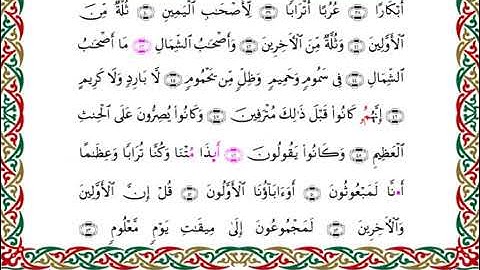 أَبْكَارًا ۝٣٦ عُرُبًا أَتْرَابًا ۝٣٧ لِّأَصْحَٰبِ ٱلْيَمِينِ ۝٣٨ ثُلَّةٌ مِّنَ
ٱلْأَوَّلِينَ ۝٣٩ وَثُلَّةٌ مِّنَ ٱلْأَخِرِينَ ۝٤٠ وَأَصْحَٰبُ ٱلشِّمَالِ ۝ مَا أَصْحَٰبُ
ٱلشِّمَالِ ۝٤١ فِي سَمُومٍ وَحَمِيمٍ ۝٤٢ وَظِلٍّ مِّن يَحْمُومٍ ۝٤٣ لَّا بَارِدٍ وَلَا كَرِيمٍ
۝٤٤ إِنَّهُمُ كَانُوا۟ قَبْلَ ذَٰلِكَ مُتْرَفِينَ ۝٤٥ وَكَانُوا۟ يُصِرُّونَ عَلَى ٱلْحِنثِ
ٱلْعَظِيمِ ۝٤٦ وَكَانُوا۟ يَقُولُونَ ۝ أَىِٕذَا مُتْنَا وَكُنَّا تُرَابًا وَعِظَٰمًا
أَ•نَّا لَمَبْعُوثُونَ ۝ أَوَءَابَآؤُنَا ٱلْأَوَّلُونَ ۝ قُلْ إِنَّ ٱلْأَوَّلِينَ
وَٱلْأَخِرِينَ ۝ لَمَجْمُوعُونَ إِلَىٰ مِيقَٰتِ يَوْمٍ مَّعْلُومٍ ۝